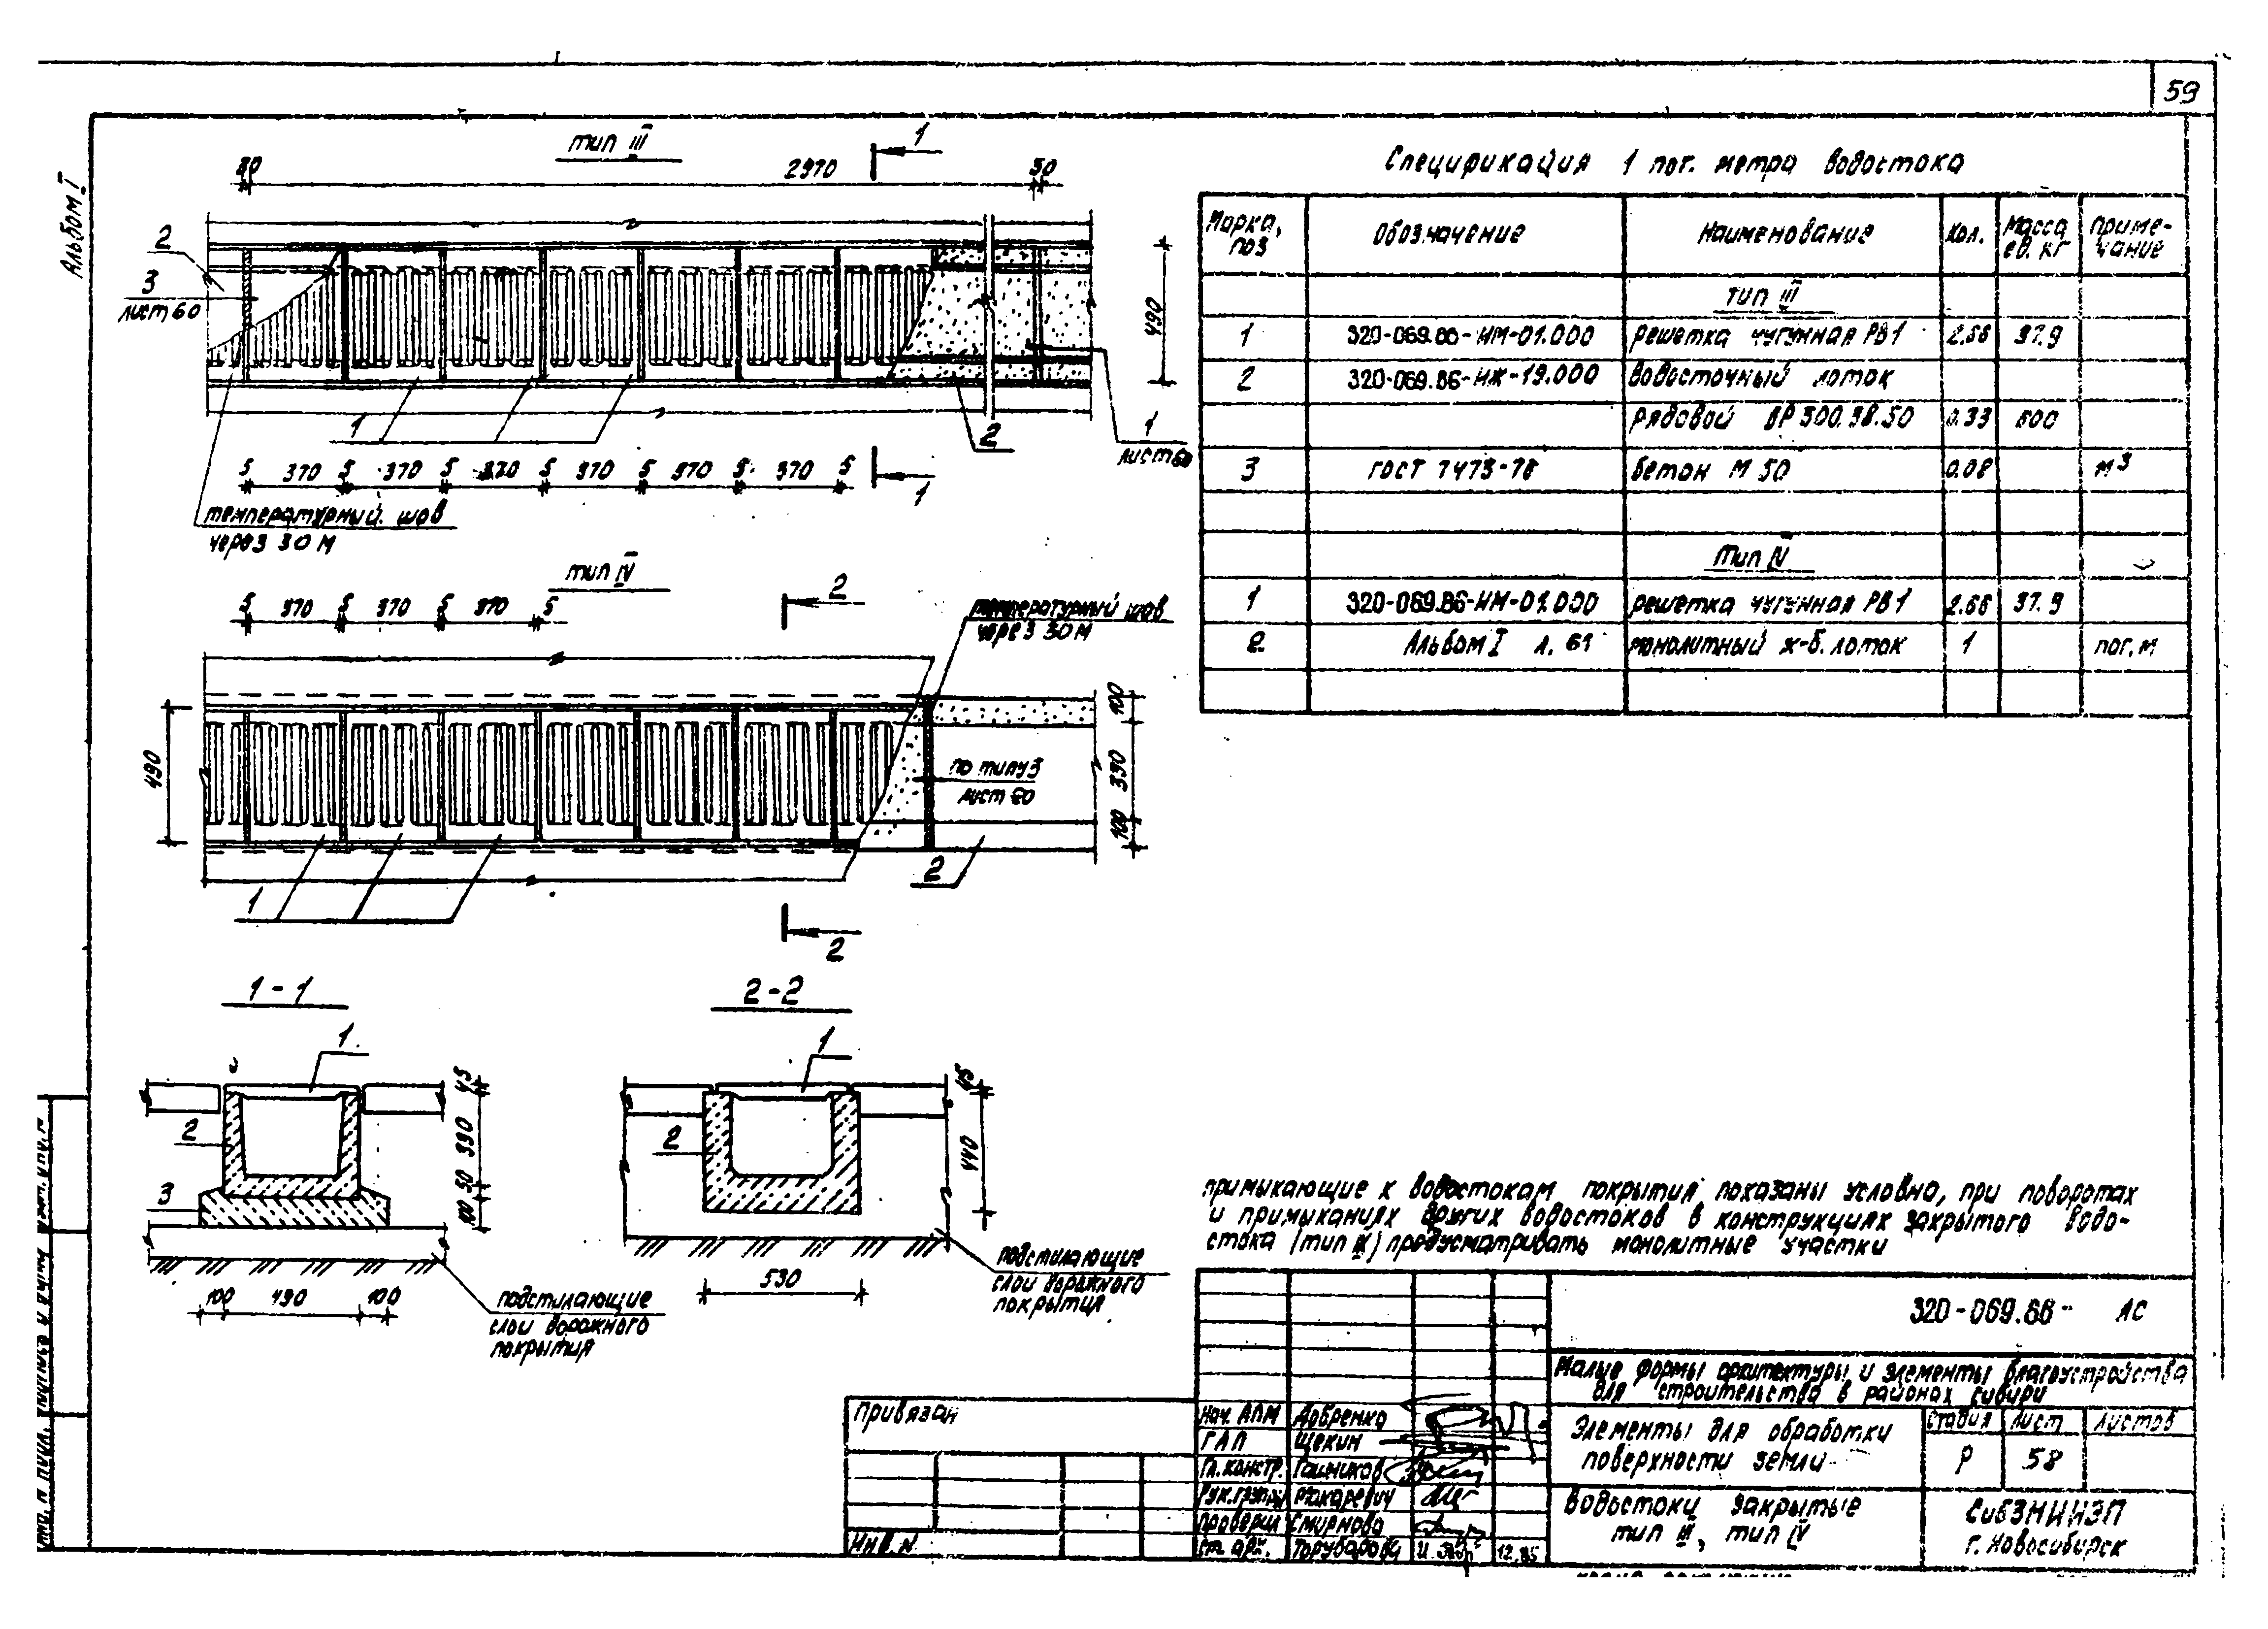 59
Альбом I
тип III
1
30
2970
30
2
3
лист 60
490
1
2
1
лист 60
5 370 5 370 5 370 5 370 5 370 5 370 5
1
температурный шов
через 30 м
тип IV
5 370 5 370 5 370 5
2
температурный шов
через 30 м
490
100
390
100
по типу 3
лист 60
1
2
2
1-1
2-2
1
2
3
45
390
50
100
100 490 100
подстилающие
слои дорожного
покрытия
1
2
45
440
530
подстилающие
слои дорожного
покрытия
Спецификация 1 пог. метра водостока
Марка, поз Обозначение Наименование Кол. Масса ед. кг Приме-чание
тип III
1 320-069.86-ИМ-01.000 решетка чугунная РВ1 2.66 37.9
2 320-069.86-ИЖ-19.000 водосточный лоток
рядовой ВР 300.38.50 0.33 600
3 ГОСТ 7473-76 бетон М 50 0.08 м3
Тип IV
1 320-069.86-ИМ-01.000 решетка чугунная РВ1 2.66 37.9
2 Альбом I л. 61 монолитный ж-б. лоток 1 пог. м
примыкающие к водостокам покрытия показаны условно, при поворотах
и примыканиях других водостоков в конструкциях закрытого водо-
стока (тип III) предусматривать монолитные участки
320-069.86- АС
Малые формы архитектуры и элементы благоустройства
для строительства в районах сибири
Привязан
Инв. N
Нач. АПМ Добренко
ГАП Щекин
Гл. констр.
Рук. группы Макаревич
Проверил Смирнова
Ст. арх. Торубарова 12.85
Элементы для обработки
поверхности земли
Стадия Лист Листов
Р 58
Водостоки закрытые
тип III, тип IV
СибЗНИИЭП
г. Новосибирск